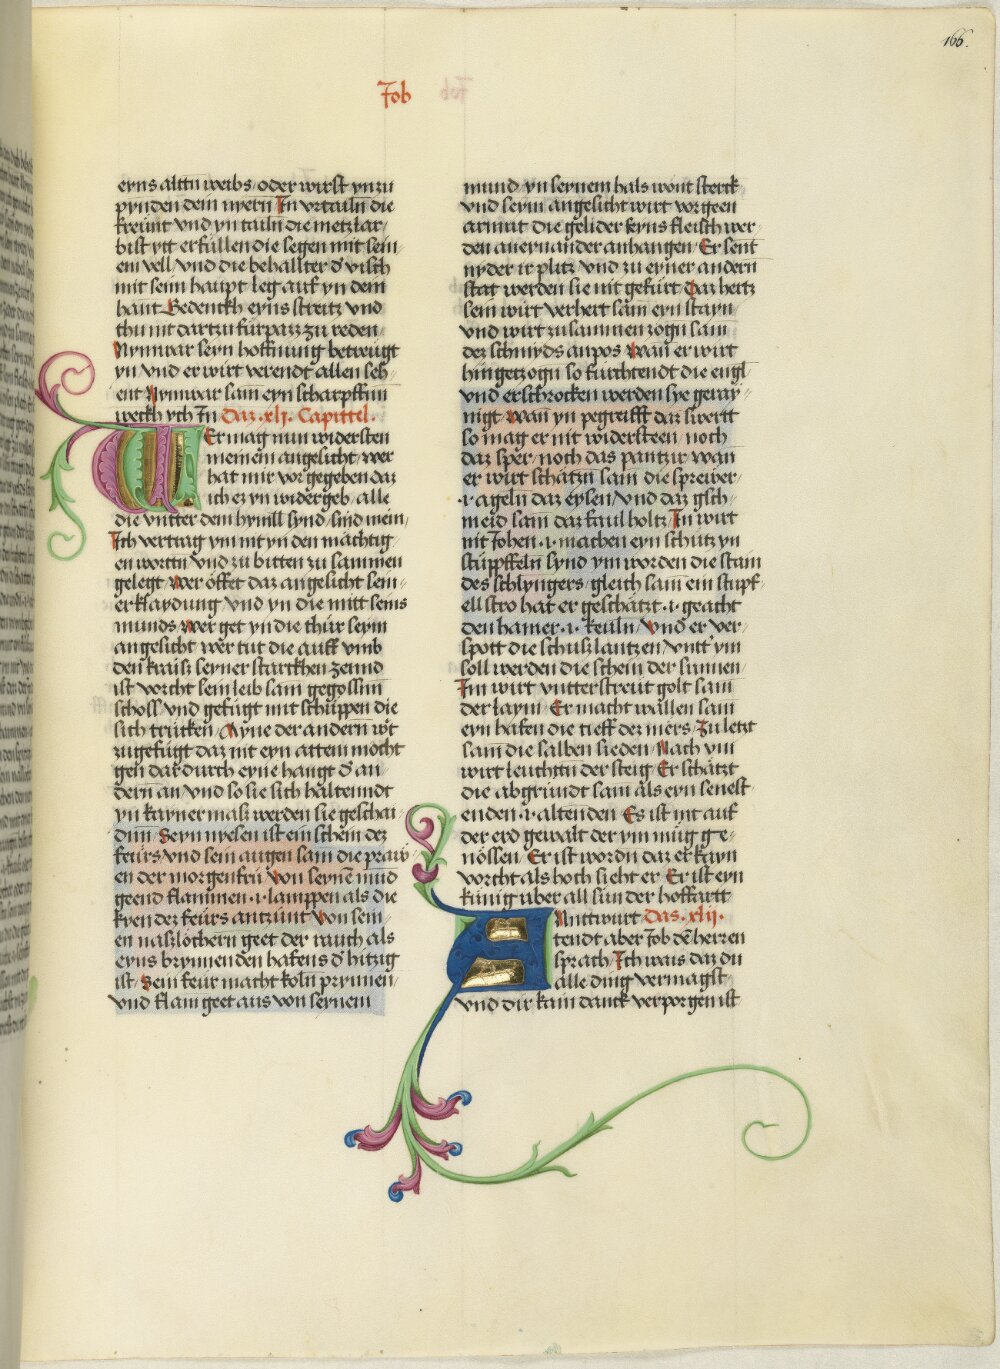 166.
Job
eyns alttn weibs, oder wirst ynzu
pynden dein myern In vrtailn die
freünt vnd yn tailn die metzlar,
bist ytt erfüllen die segen mit sein,
em vell, vnd die behallter d visch
mit seim haupt leg auf yn dein
hant Gedenckh eyns streitz vnd
thu nit dartzu fürpazz zu reden,
Nymwar seyn hoffnung betreugt
yn vnd er wirt verendt allen seh,
ent Nymwar sam eyn scharpffim
weckh ych In Daz .xlj. Capittel.
WEr mag nun widersten
meinem angesicht, wer
hat mir vor gegeben daz
ich ez yn widergeb, alle
die vntter dem hymll synd, sind mein,
Ich vertrag ym nit yn den mächtig,
en worttn vnd zu bitten zu sammen
gelegt, Wer öffet daz angesicht sein,
er klaydung vnd yn die mitt seins
munds, Wer get yn die thür seym
angesicht wer tut die auff vmb
den kraiß seyner starckhen zennd
ist vorcht sein leib sam gegossnn
schosß vnd gefügt mit schüppen die
sich trücken, Ayne der andern wt
zugefügt daz nit eyn attem möcht
gen dar durch eyne hangt d an,
dern an vnd so sie sich haltenndt
yn kayner maß werden sie geschai,
dnn, Seyn nyesen ist ein schein dez
feürs, vnd sein augen sam die praw,
en der morgenfrü Von seyne mud
geend flammen .i. lamppen als die
kyen dez feürs antzunt Von sein,
en naszlöchern geet der rauch als
eyns brynnenden hafens d hitzig
ist, Sein feür macht koln prynnen,
vnd flam geet aus von seynem
mund, yn seynem hals wont sterck
vnd seym angesicht wirt vorgeen
armut die gelider seyns fleisch wer,
den aneynander anhangen, Er sent
nyder ir plitz vnd zu eyner andern
stat werden sie nit gefürt Daz hertz
sein wirt verhert sam eyn stayn
vnd wirt zusammen zogn sam
dez schmyds anpos Wan er wirt
hingetzogn so fürchtendt die engl
vnd erschrocken werden sye geray,
nigt, Wan yn pegreifft daz swertt
so mag er nit widersteen, noch
daz sper, noch das pantzir wan
er wirt schätzn sam die spreiwer,
.i. ageln daz eysen, vnd daz gsch,
meid sam daz faul holtz, In wirt
nit Johen .i. machen eyn schütz yn
stüppffeln synd ym worden die stain
des schlyngers, gleich sam ein stupf,
ell stro hat er geschätzt .i. geacht
den hamer .i. keuln, Vnd er ver,
spott die schuszlantzen vntt ym
soll werden die schein der sunnen,
Im wirt vntterstreüt golt sam
der laym, Er macht wallen sam
eyn hafen die tieff dez mers, Zu letzt
sam die salben sieden, Nach ym
wirt leuchtn der steig, Er schätzt
die abgründt sam als eyn senest
enden .i. altenden Es ist nit auf
der erd gewalt der ym müg ge,
nössen, Er ist wordn daz er kayn
vorcht als hoch sicht er Er ist eyn
künig über all sün der hoffartt
ANttwurt Das .xlij.
tendt aber Job de herren
sprach, Ich wais daz du
alle ding vermagst
vnd dir kain danck verporgen ist